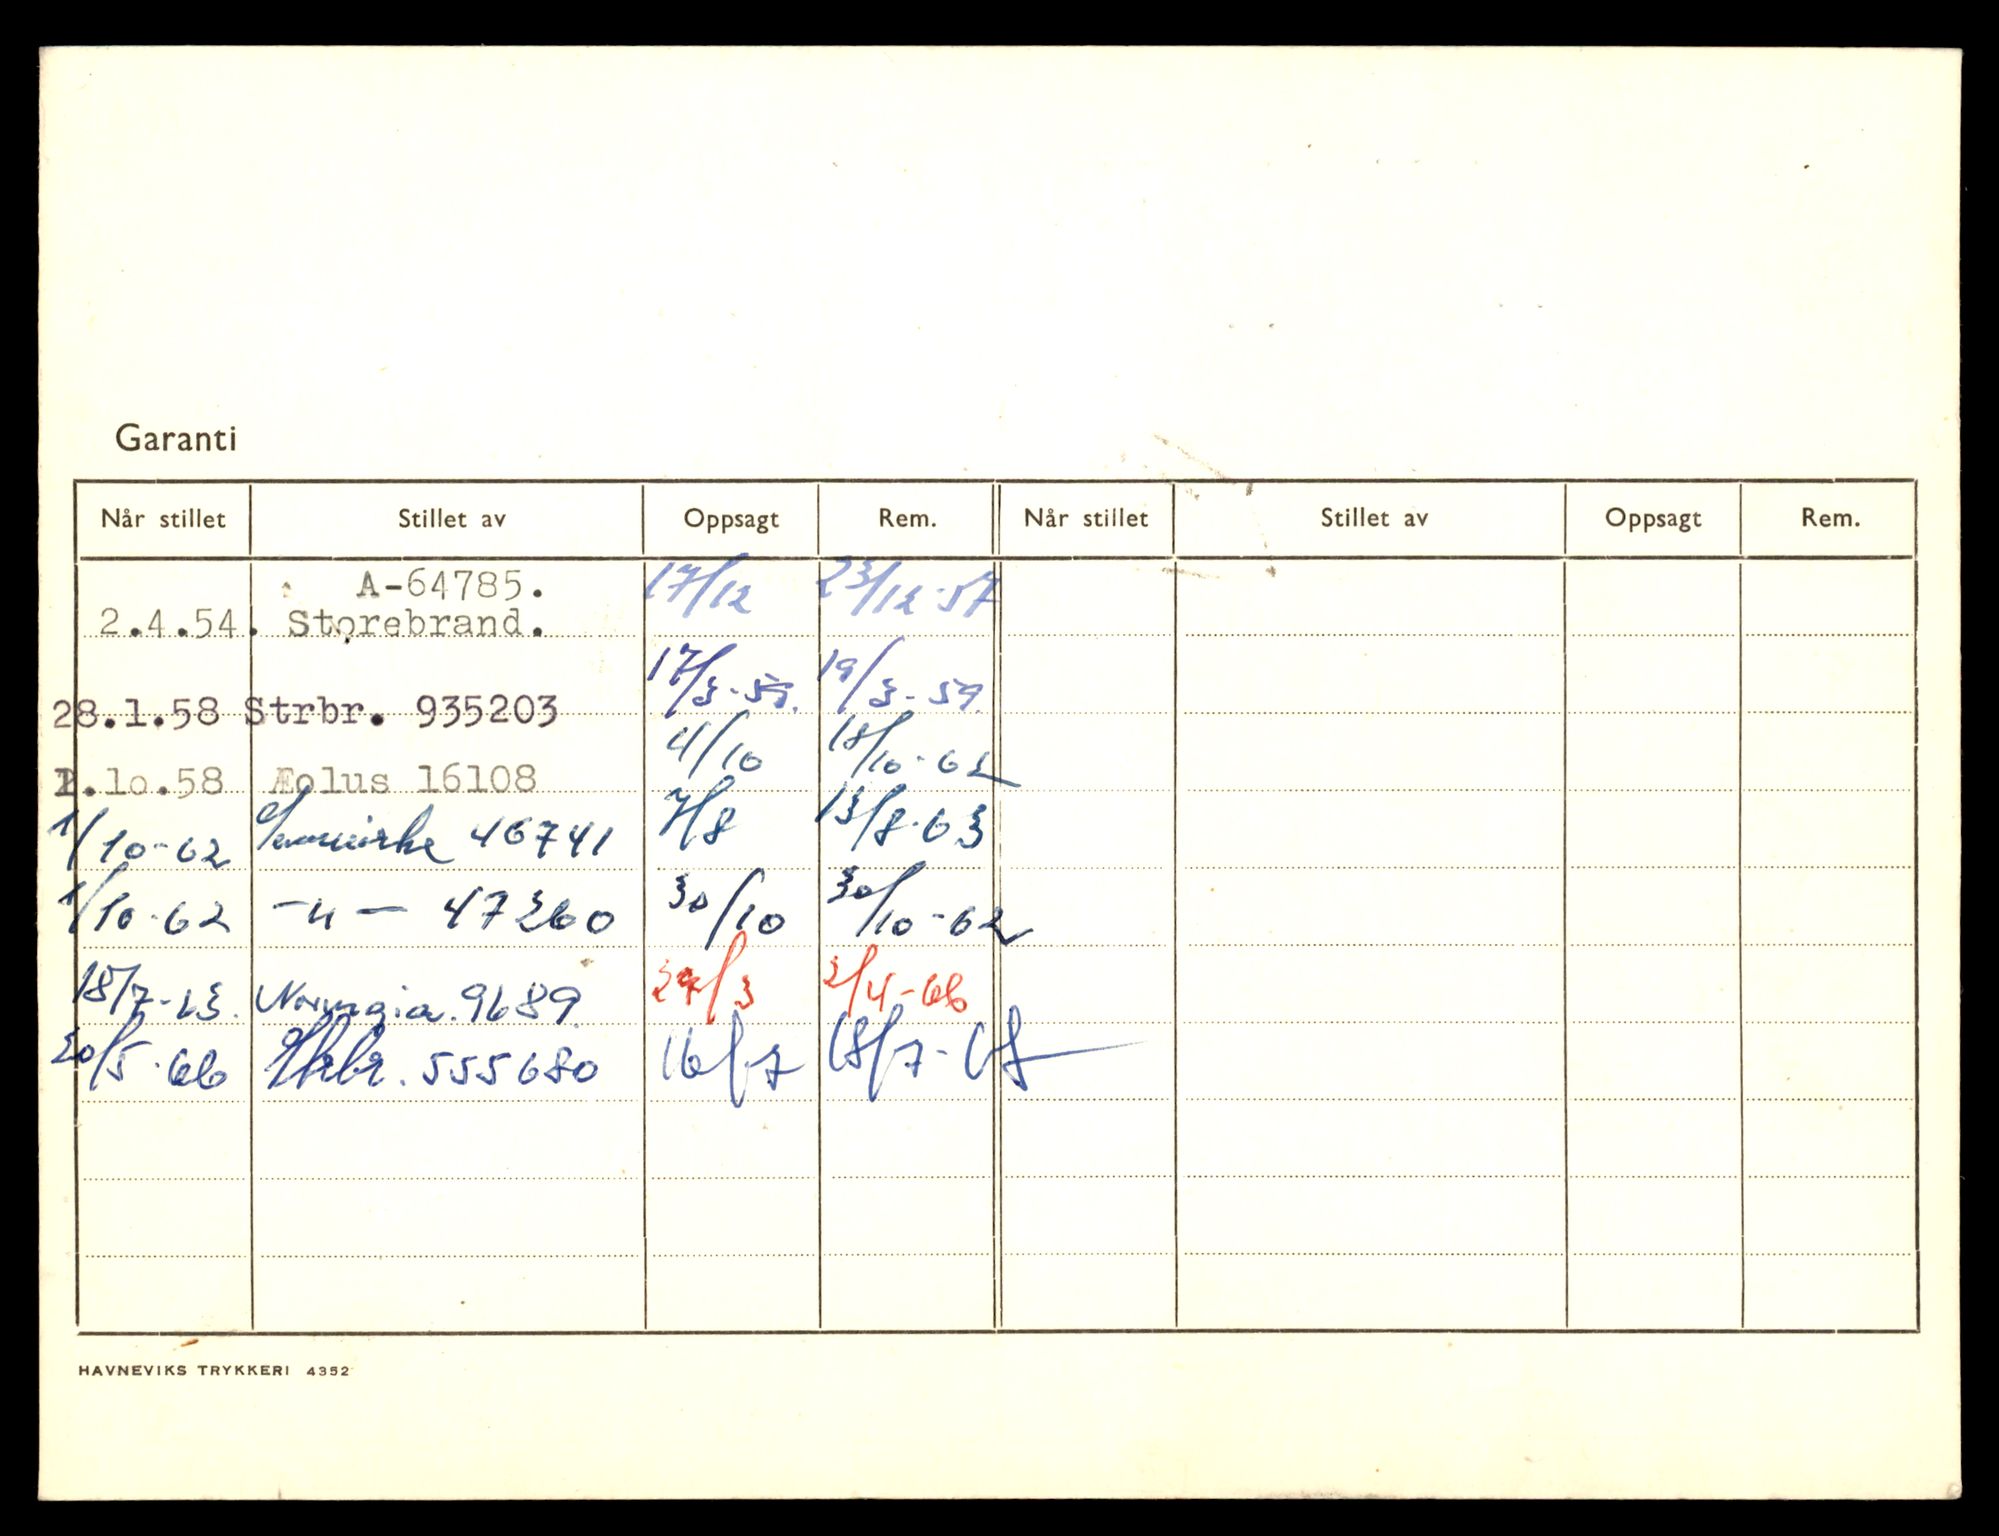 Garanti
Når stillet Stillet av Oppsagt Rem. Når stillet Stillet av Oppsagt Rem.
A-64785. 17/12 23/12-57
2.4.54. Storebrand.
28.1.58 Strbr. 935203 17/3-59. 19/3-59.
.10.58 Æolus 16108 4/10 18/10-62
1/10-62 46741 7/8 13/8-63
1/10-62 -"- 47360 30/10 30/10-62
18/7-63. Norvegia. 9689. 24/3 2/4-66
20/5-66 Strbr. 555680 16/7 18/7-68
HAVNEVIKS TRYKKERI 4352